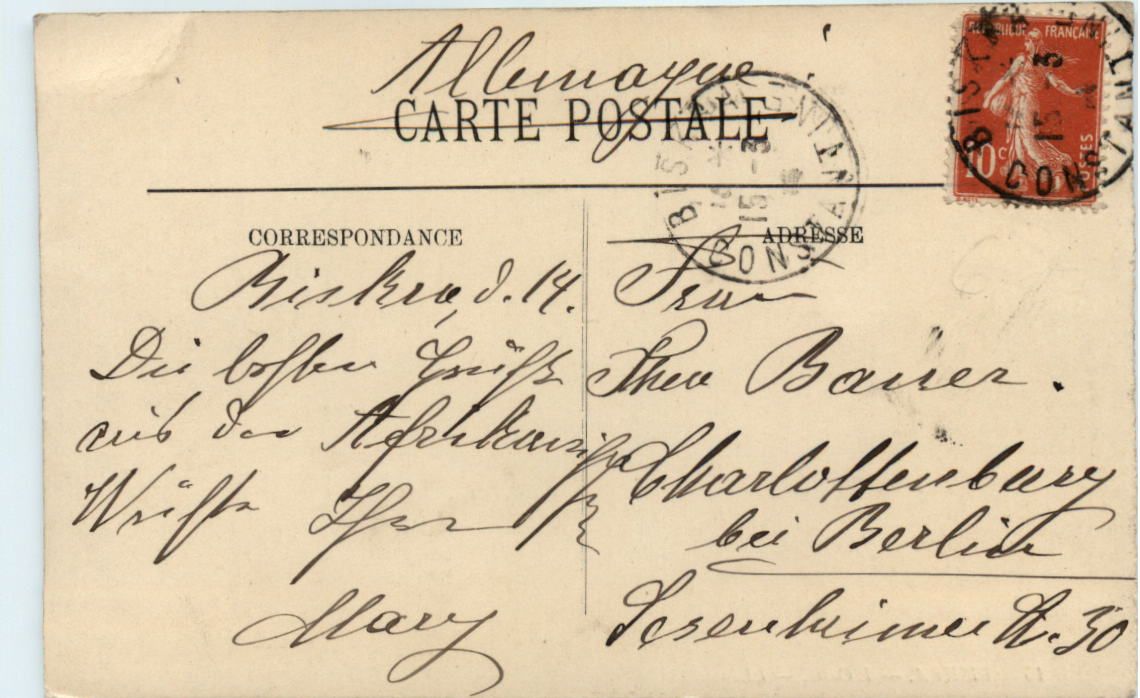 Allemagne
CARTE POSTALE
REPUBLIQUE FRANÇAISE
10 C
POSTES
BISKRA
15 -3
CONSTANTINE
BISKRA
15 -3
CONSTANTINE
CORRESPONDANCE
Biskra, d. 14.
Die besten Grüße
aus der Afrikanischen
Wüste Ihre
Mary
ADRESSE
Frau
Theo Bauer.
Charlottenburg
bei Berlin
Sesenheimer St. 30